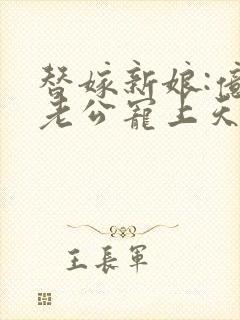 替嫁新娘:億
老公寵上天
王長軍